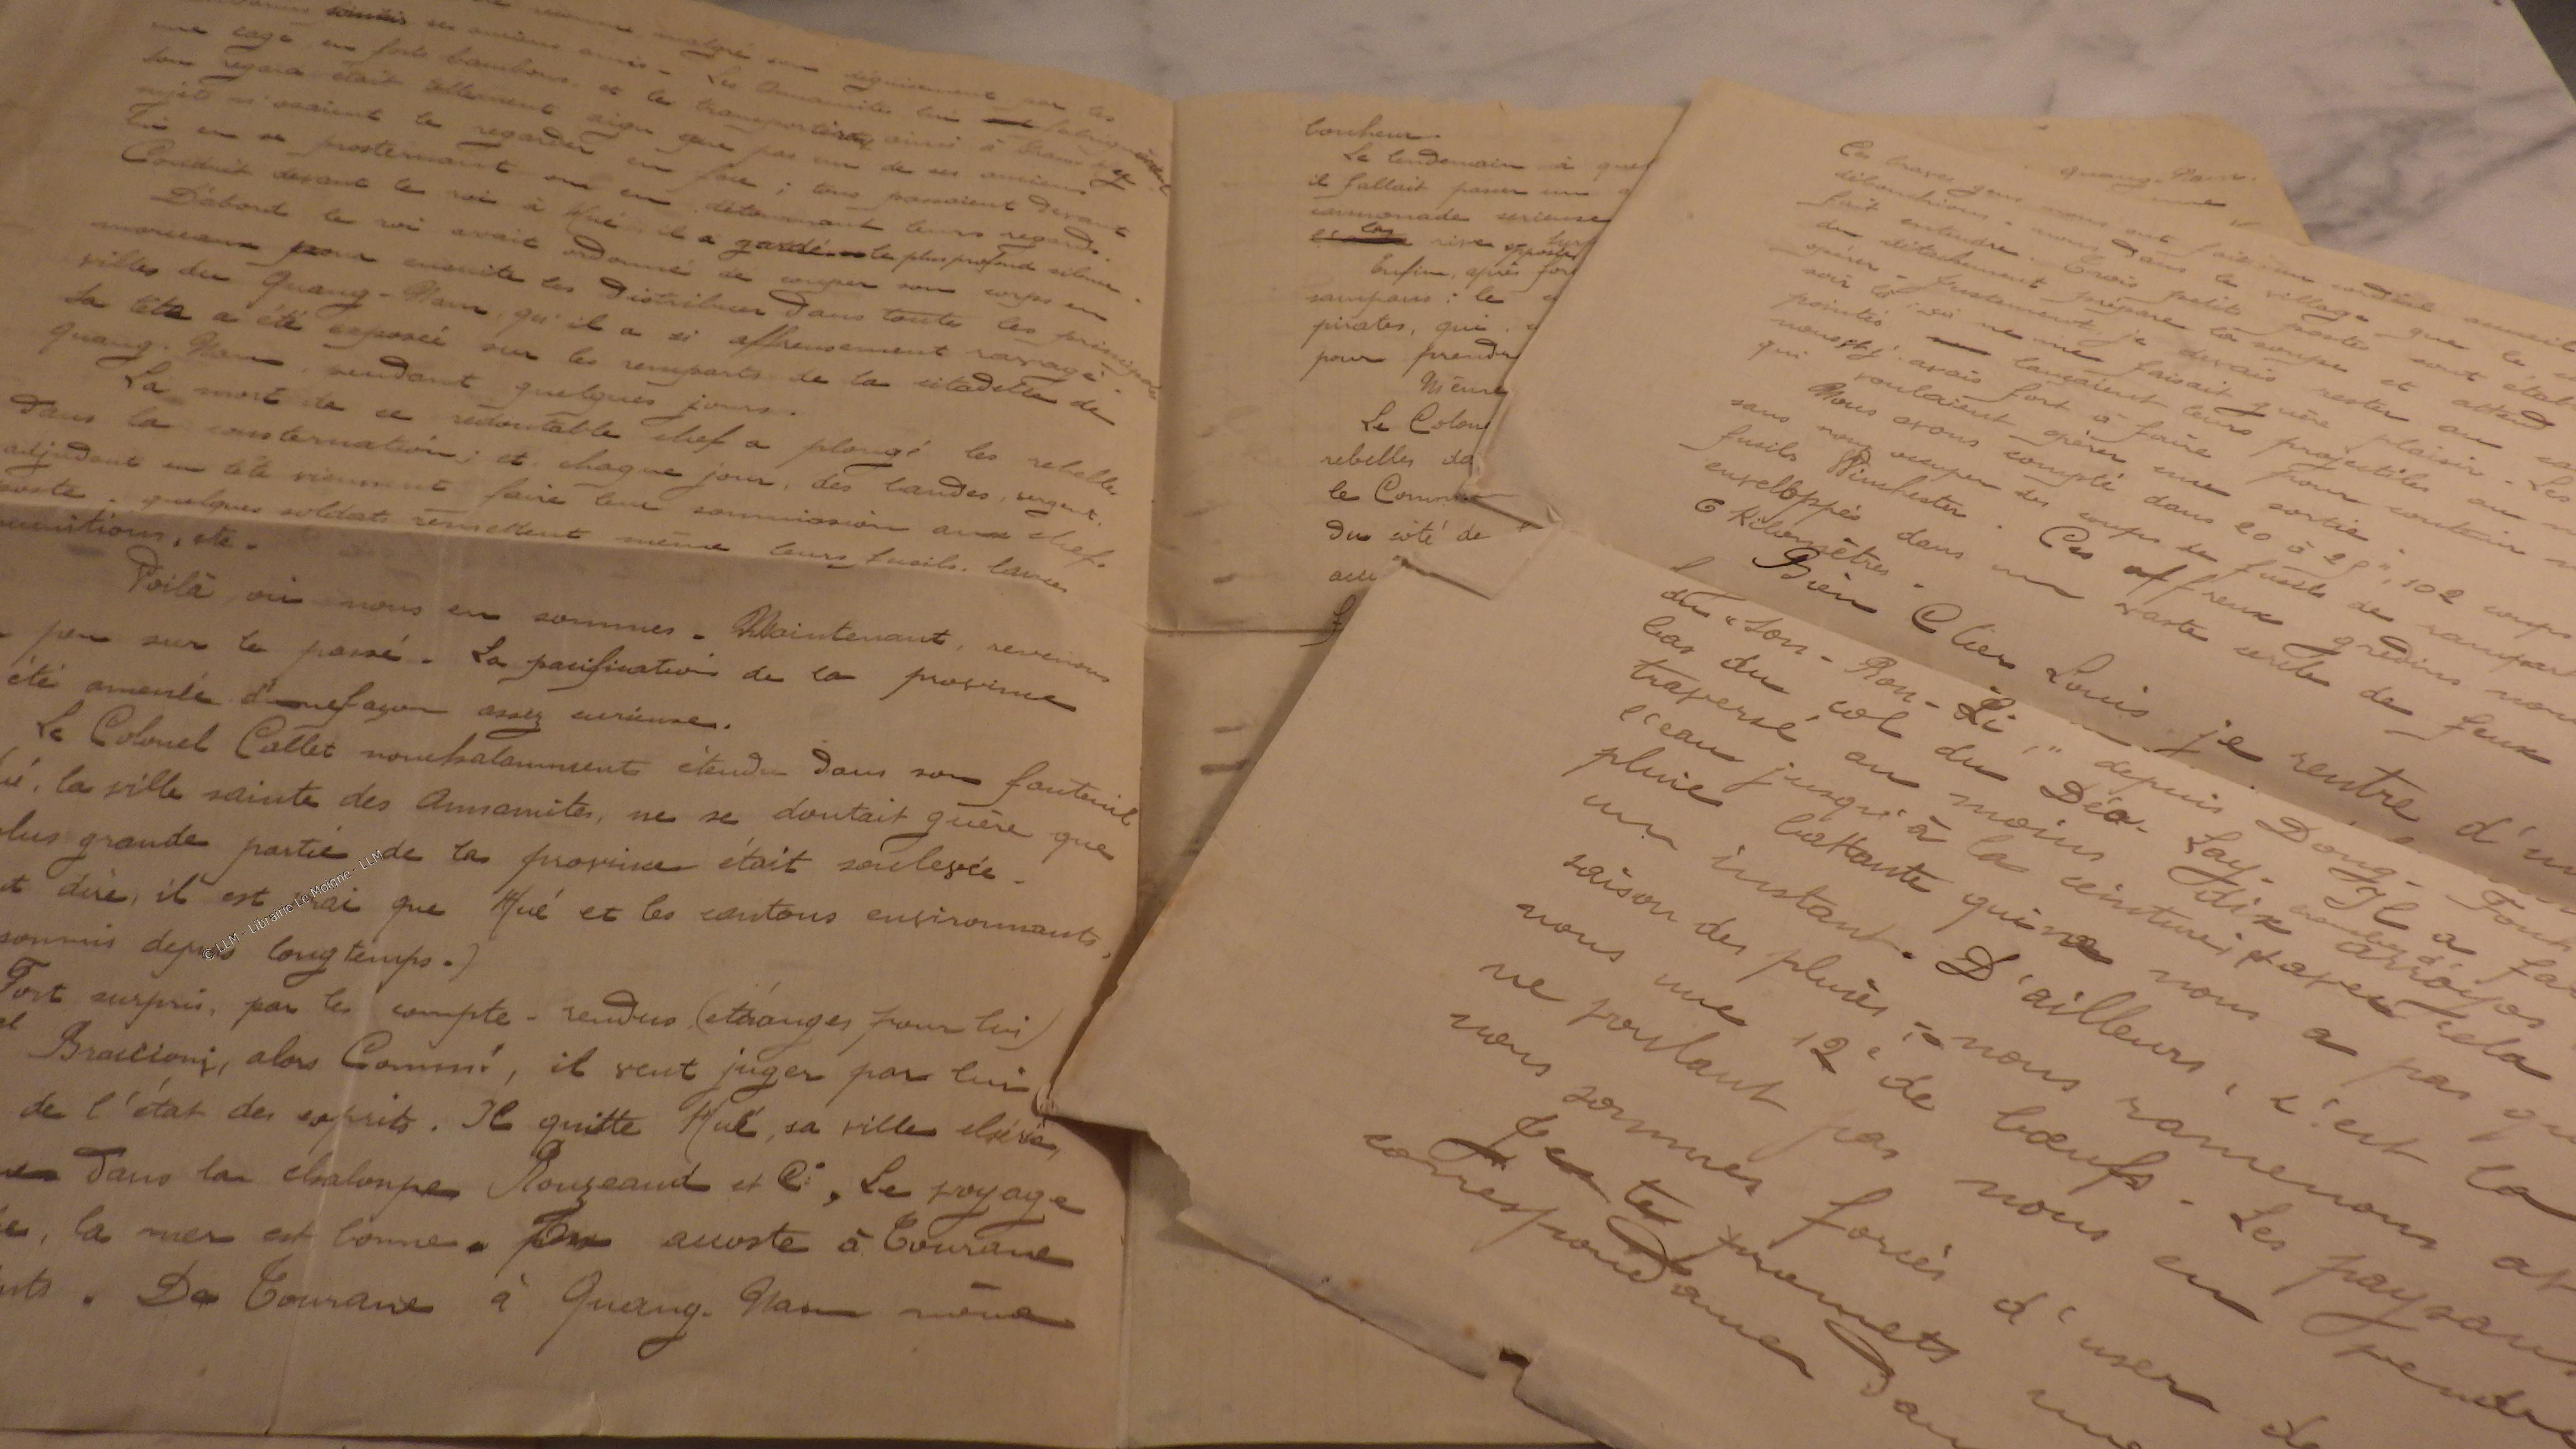 soumis ses anciens amis - Les Annamites lui fabriquèrent
une cage en forts bambous, et le transportèrent ainsi à
Son regard était tellement aigu que pas un de ses anciens
sujets n'osaient le regarder en face ; tous passaient devant
lui en se prosternant ou en détournant leurs regards.
Conduit devant le roi à Hué il a gardé le plus profond silence.
D'abord le roi avait ordonné de couper son corps en
morceaux pour ensuite les distribuer dans toutes les principales
villes du Quang-Nam, qu'il a si affreusement ravagé.
Sa tête a été exposée sur les remparts de la citadelle de
Quang-Nam, pendant quelques jours.
La mort de ce redoutable chef a plongé les rebelles
dans la consternation ; et chaque jour, des bandes, sergent,
adjudant en tête viennent faire leur soumission aux chefs
poste. quelques soldats remettent même leurs fusils, lances
munitions, etc.
Voilà où nous en sommes. Maintenant, revenons
peu sur le passé. La pacification de la province
été amenée d'une façon assez curieuse.
Le Colonel Callet nonchalamment étendu dans son fauteuil
ué, la ville sainte des Annamites, ne se doutait guère que
plus grande partie de la province était soulevée.
t dire, il est vrai que Hué et les cantons environnants,
soumis depuis longtemps.)
Fort surpris, par les compte-rendus (étranges pour lui)
Braccioni, alors Commt, il veut juger par lui
de l'état des esprits. Il quitte Hué, sa ville chérie,
dans la chaloupe Rouzeaud et Cie. Le voyage
, la mer est bonne. On accoste à Tourane
nts. De Tourane à Quang-Nam même
bonheur.
Le lendemain à quel
il fallait passer un
canonnade sérieuse
rive opposée
Enfin, après for
sampans : le
pirates, qui
pour prendr
Même
Le Colon
rebelles da
le Comm
du côté de
Quang-Nam.
Ces braves gens nous ont fait un cordial accueil
débouchions - nous dans le village que le
fait entendre. Trois petits postes sont établ
du détachement prépare la soupe et attend
opérer. Justement je devais rester au ca
soir là ne me faisait guère plaisir. Les
pointés lançaient leurs projectiles au m
nous et j'avais fort à faire pour contenir
qui voulaient opérer une sortie.
Nous avons compté dans 20 à 25", 102 coups
sans nous occuper des coups de fusils de rempart
fusils Winchester. Ces affreux gredins nous
enveloppés dans un vaste cercle de feux
6 Kilomètres.
Bien Cher Louis, je rentre d'un
du "Son-Ron-Li," depuis Dong-
bas du col du Déo-Lay. Il a
traversé au moins dix arroyos
l'eau jusqu'à la ceinture ; et avec cela
pluie battante qui ne nous a pas qu
un instant. D'ailleurs, c'est la
saison des pluies ; nous ramenons
nous une 12e de bœufs. Les paysans
ne voulant pas nous en vendre
nous sommes forcés d'user de
Je te promets une
correspondance dan
© LLM - Librairie Le Moigne - LLM